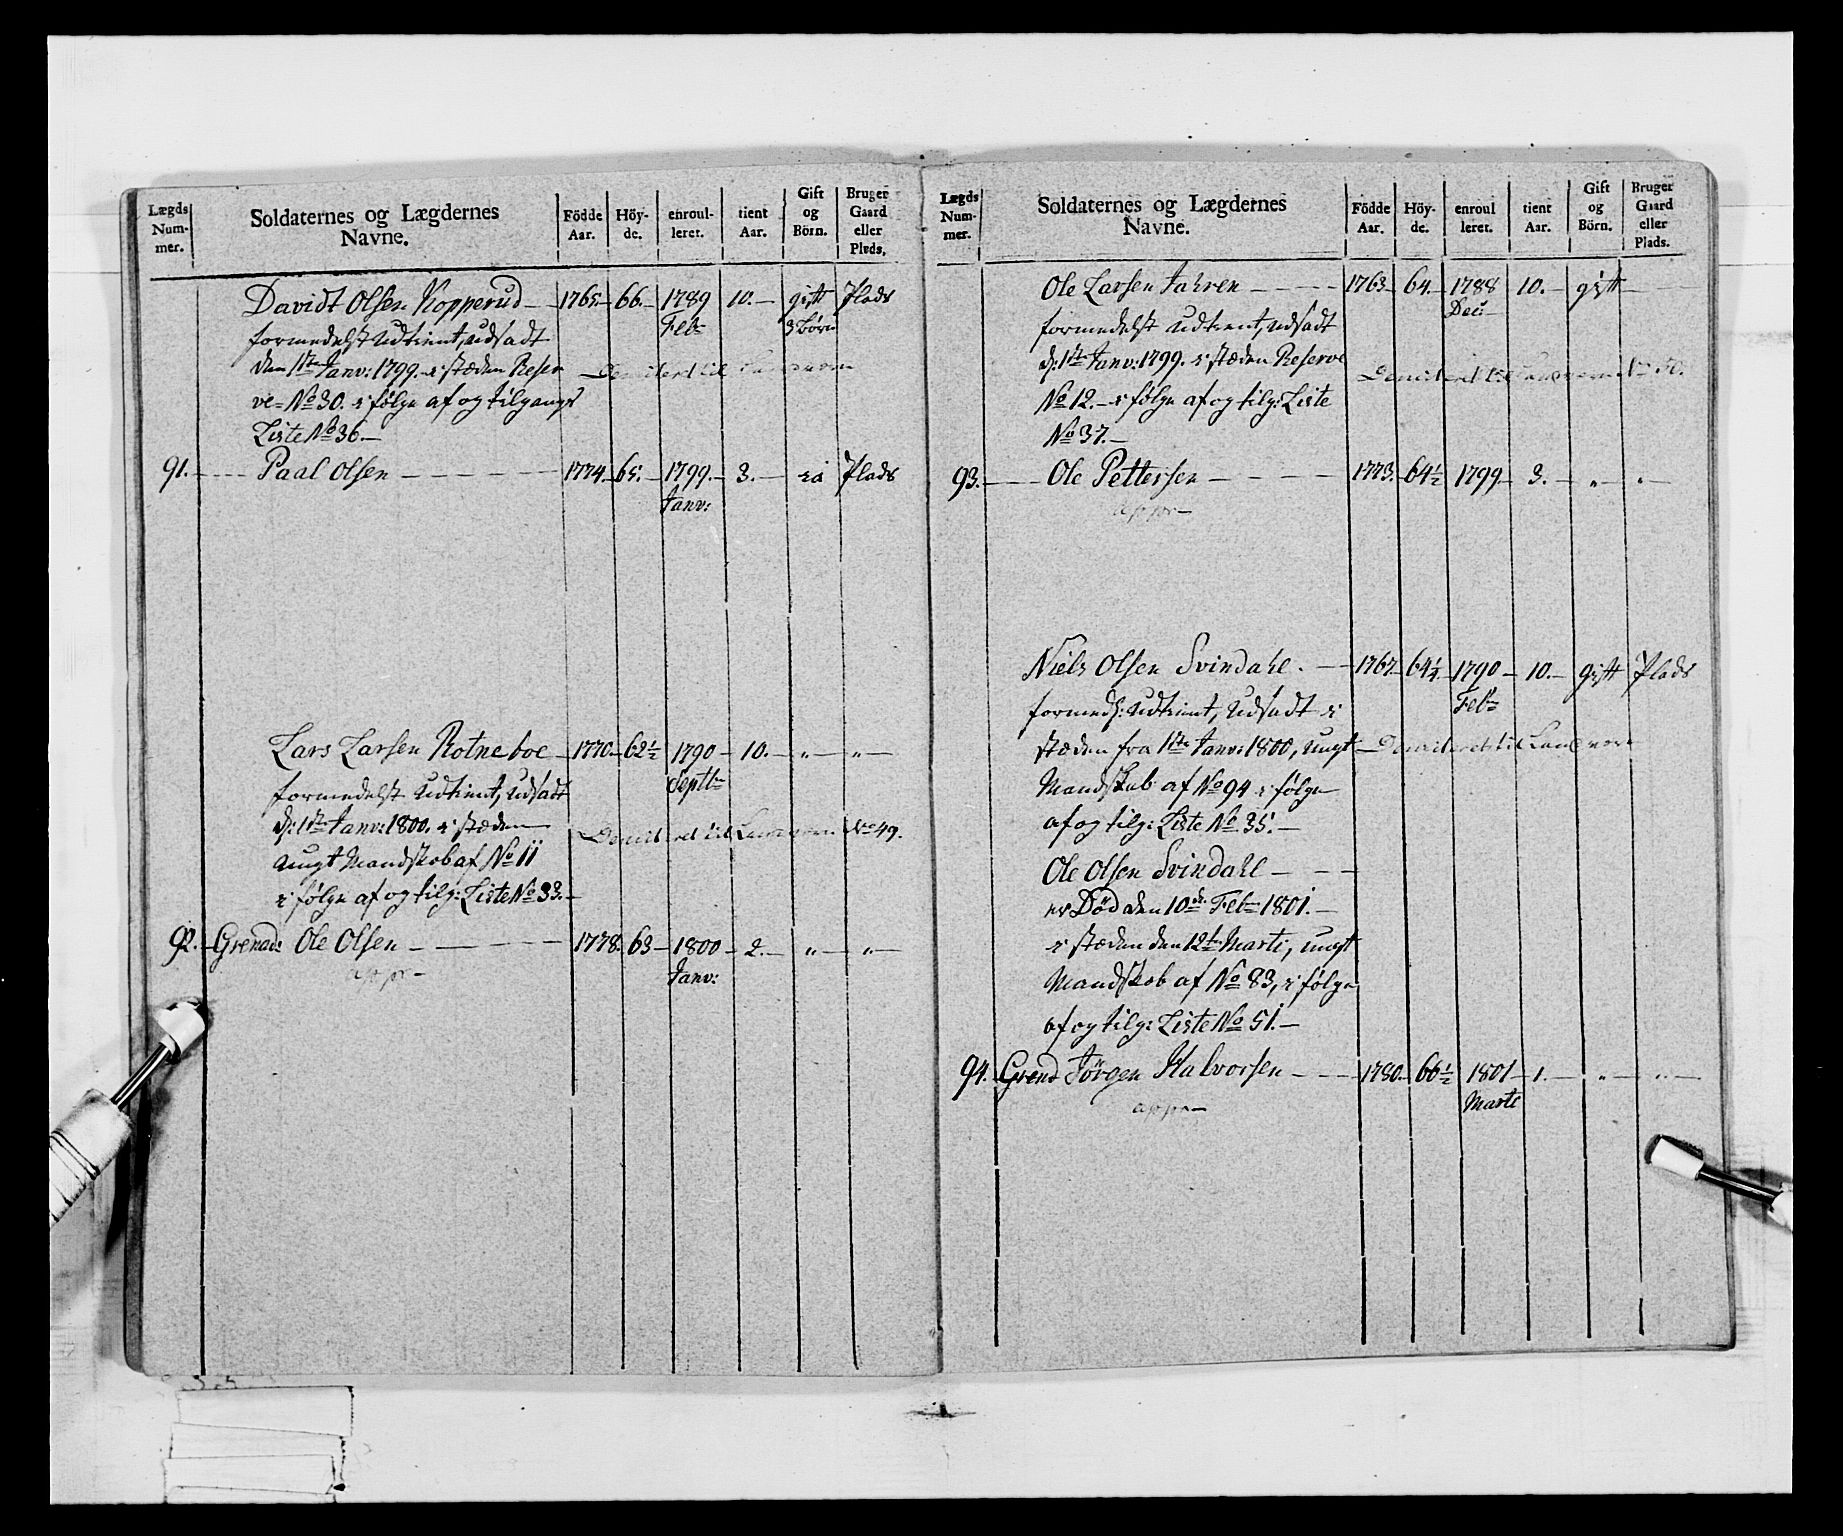 Lægds Num- mer.
Soldaternes og Lægdernes Navne.
Födde Aar.
Höy- de.
enroul- leret.
tient Aar.
Gift og Börn.
Bruger Gaard eller Plads.
Davidt Olsen Kopperud — 1765. 66. 1789 10. gift Plads
formedelst udtient, udsadt Feb: 3 børn
den 1ste Janv: 1799. i stæden Reser
Demiteret til
ve= No 30. i følge af og tilgangs
Liste No 36.
91. Paal Olsen — 1774. 65. 1799. 3. Plads
Janv:
Lars Larsen Rotneboe — 1770 62½ 1790 10. " "
formedelst udtient, udsadt Septb:
d: 1ste Janv: 1800. i stæden
Demiteret til Landværn No 49.
ungt Mandskab af No 11
i følge af og tilg: Liste No 33.
92. Grenad: Ole Olsen — 1778. 63 1800 2. " "
appr Janv:
Lægds Num- mer.
Soldaternes og Lægdernes Navne.
Födde Aar.
Höy- de.
enroul leret.
tient Aar.
Gift og Börn.
Bruger Gaard eller Plads.
Ole Larsen Jahren — 1763 64. 1788 10. gift
Dec:
formedelst udtient, udsadt
d: 1ste Janv: 1799. i stæden Reserve
Demiteret til Landværn No 50.
No 12. i følge af og tilg: Liste
No 37.
93. Ole Pettersen — 1773. 64½ 1799 3. " "
appr
Niels Olsen Svindahl. — 1767. 64½ 1790 10. gift Plads
Feb:
formedl: udtient, udsadt i
stæden fra 1ste Janv: 1800, ungt Demiteret til Landværn
Mandskab af No 94 i følge
af og tilg: Liste No 35.
Ole Olsen Svindahl
er Död den 10de Feb: 1801.
i stæden den 12te Marti, ungt
Mandskab af No 83, i følge
af og tilg: Liste No 51.
94. Grend Jörgen Halvorsen — 1780. 66½ 1801 1. " "
appr Marti